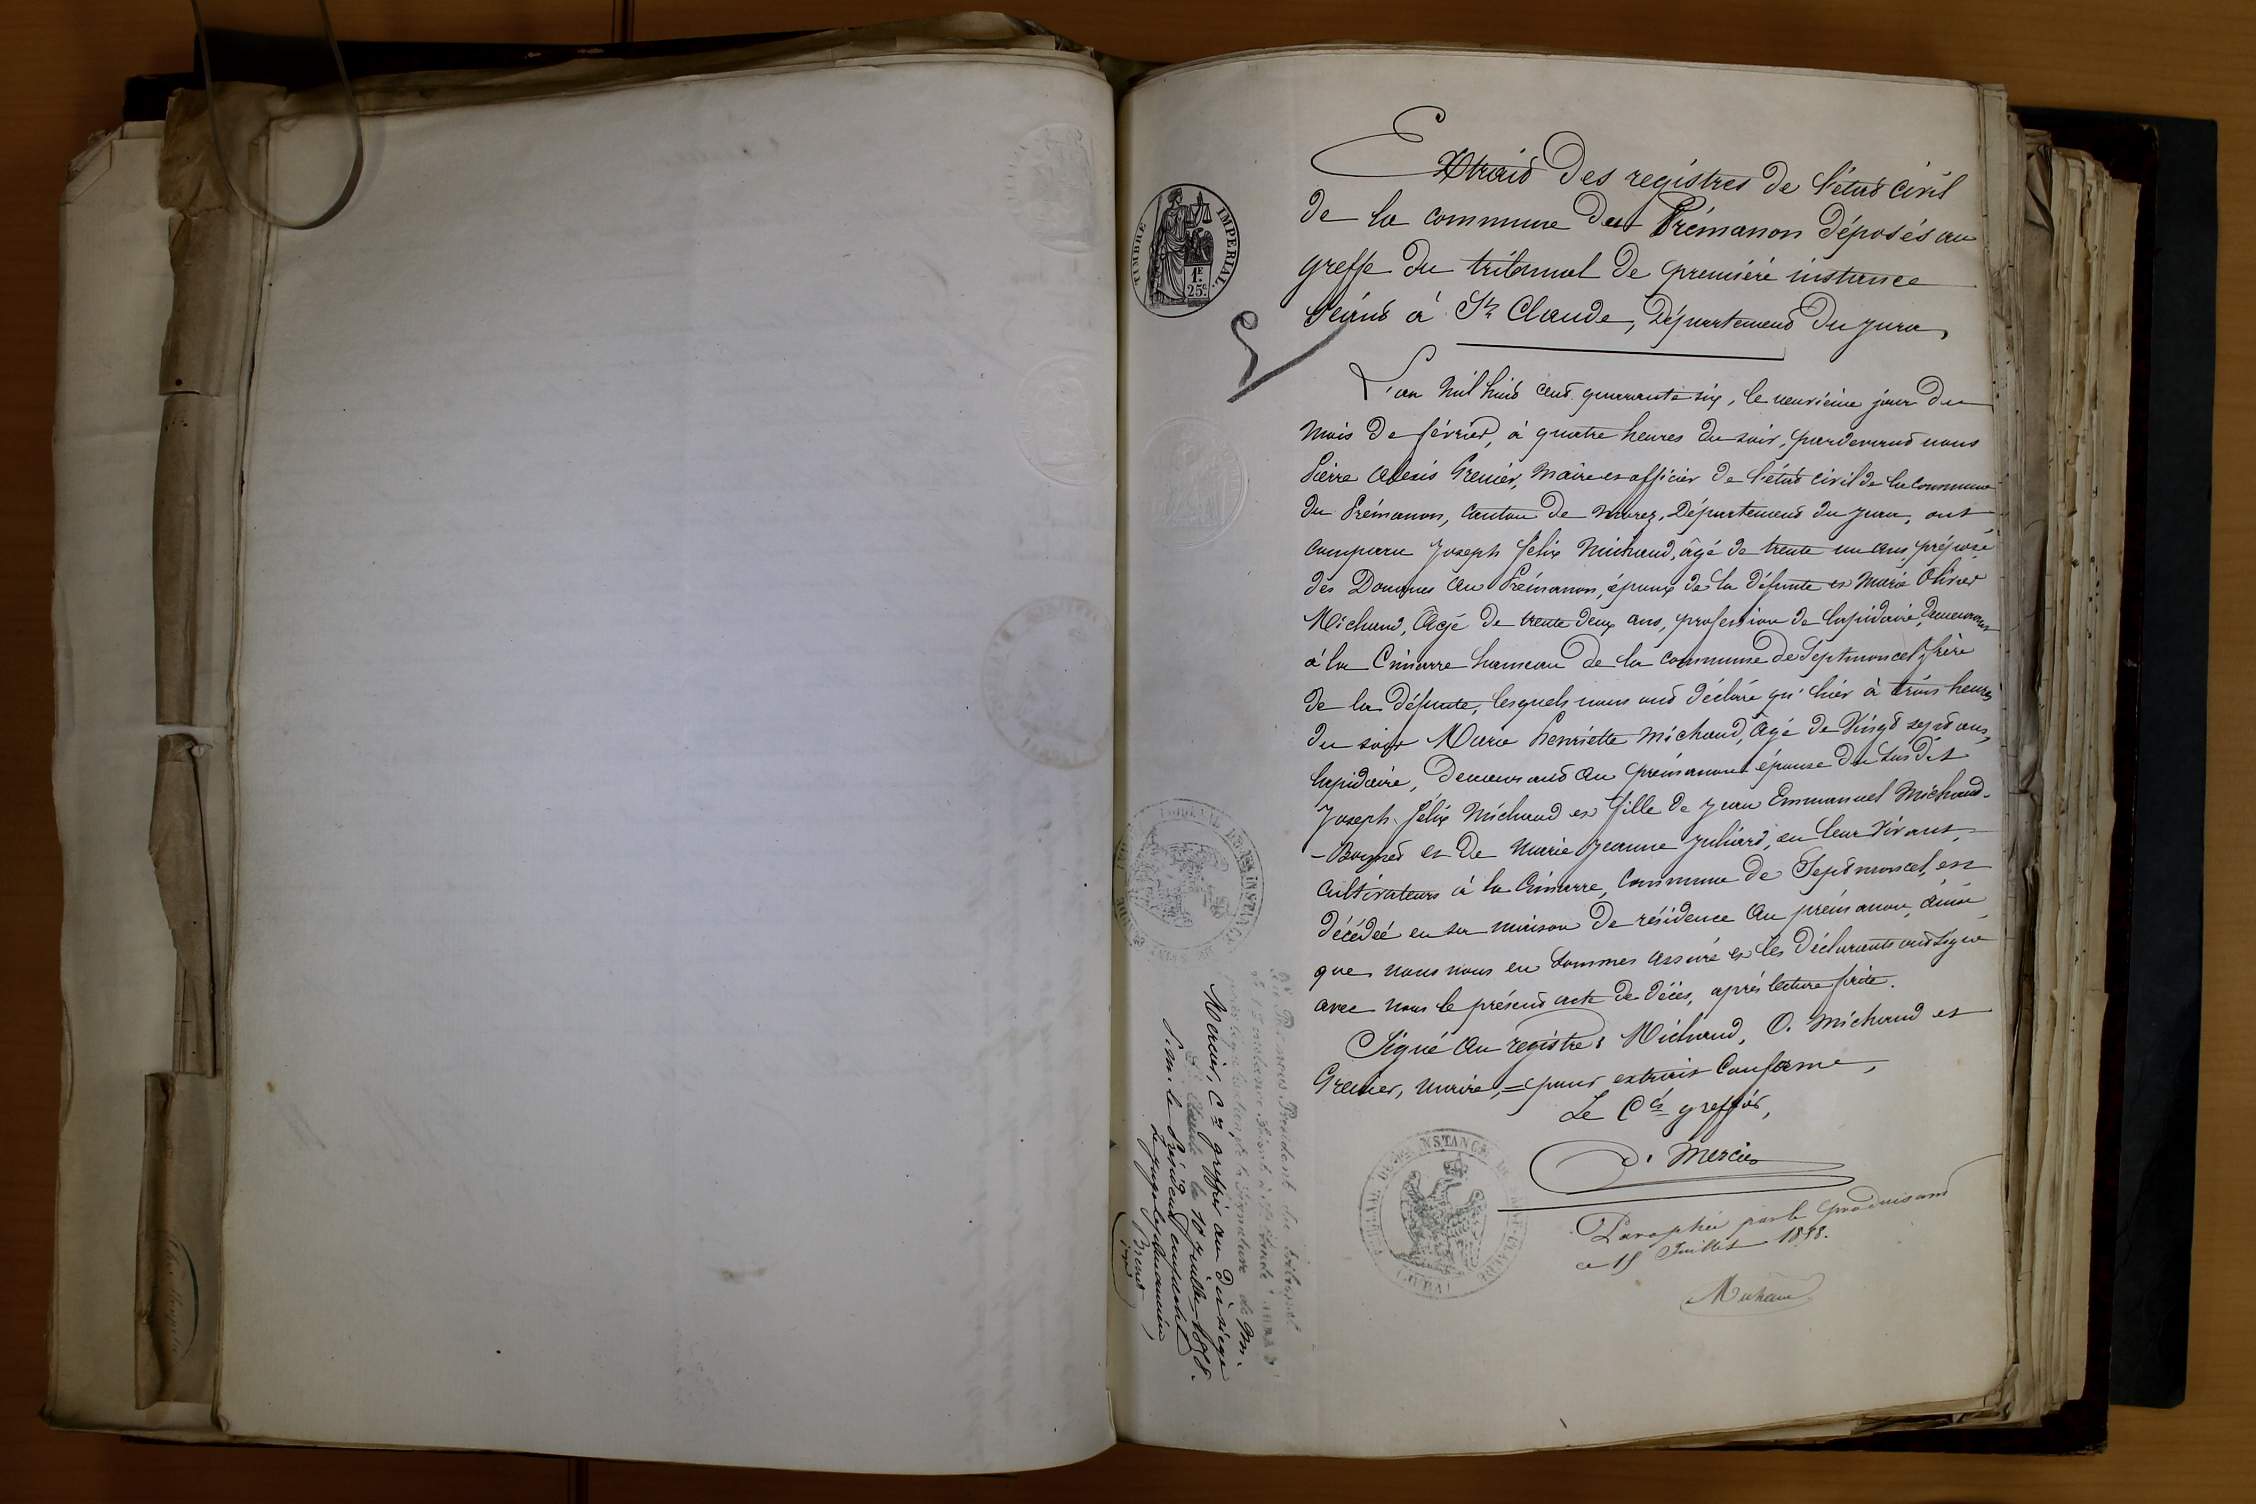 Extrait Des registres de l'état civil
de la commune du Prémanon déposés au
greffe du tribunal de première instance
séant à St Claude, Département du jura,
L'an mil huit cent quarante six, le neuvième jour du
mois de février, à quatre heures du soir, pardevant nous
Pierre Alexis Grenier, Maire et officier de l'état civil de la commune
du Prémanon, Canton de Morez, Département du jura, ont
comparu Joseph Félix Michaud, âgé de trente un ans préposé
des Douanes au Prémanon, époux de la défunte et Marie Olivier
Michaud, âgé de trente deux ans, profession de lapidaire, demeurant
à la Cimarre hameau de la commune de Septmoncel, frère
de la défunte, lesquels nous ont déclaré qu'hier à trois heures
du soir Marie henriette Michaud, âgé de vingt sept ans,
lapidaire, demeurant au prémanon épouse du susdit
Joseph félix Michaud et fille de jean Emmanuel Michaud-
-Baymed et de Marie jeanne juhard, en leur vivant,
cultivateurs à la Cimarre, commune de Septmoncel, est
décédée en sa maison de résidence au prémanon, ainsi
que nous nous en sommes assuré et les déclarants ont signé
avec nous le présent acte de décès, après lecture faite.
Signé au registre: Michaud, O. Michaud et
Grenier, maire, = pour extrait conforme,
Le Cis greffier,
Mercier
Paraphée par le produisant
ce 15 Juillet 1858.
Michaud
TIMBRE IMPERIAL.
1F.
25C.
TRIBUNAL DE 1RE INSTANCE DE SAINT-CLAUDE
(JURA)
TRIBUNAL DE 1RE INSTANCE
Vu par nous Président du tribunal
de 1re instance séant à St Claude (JURA)
pour légalisation de la Signature de Mr.
Mercier, Cis greffier au dit siège
St Claude le 10 juillet 1858.
Pour le Président empêché
Le juge